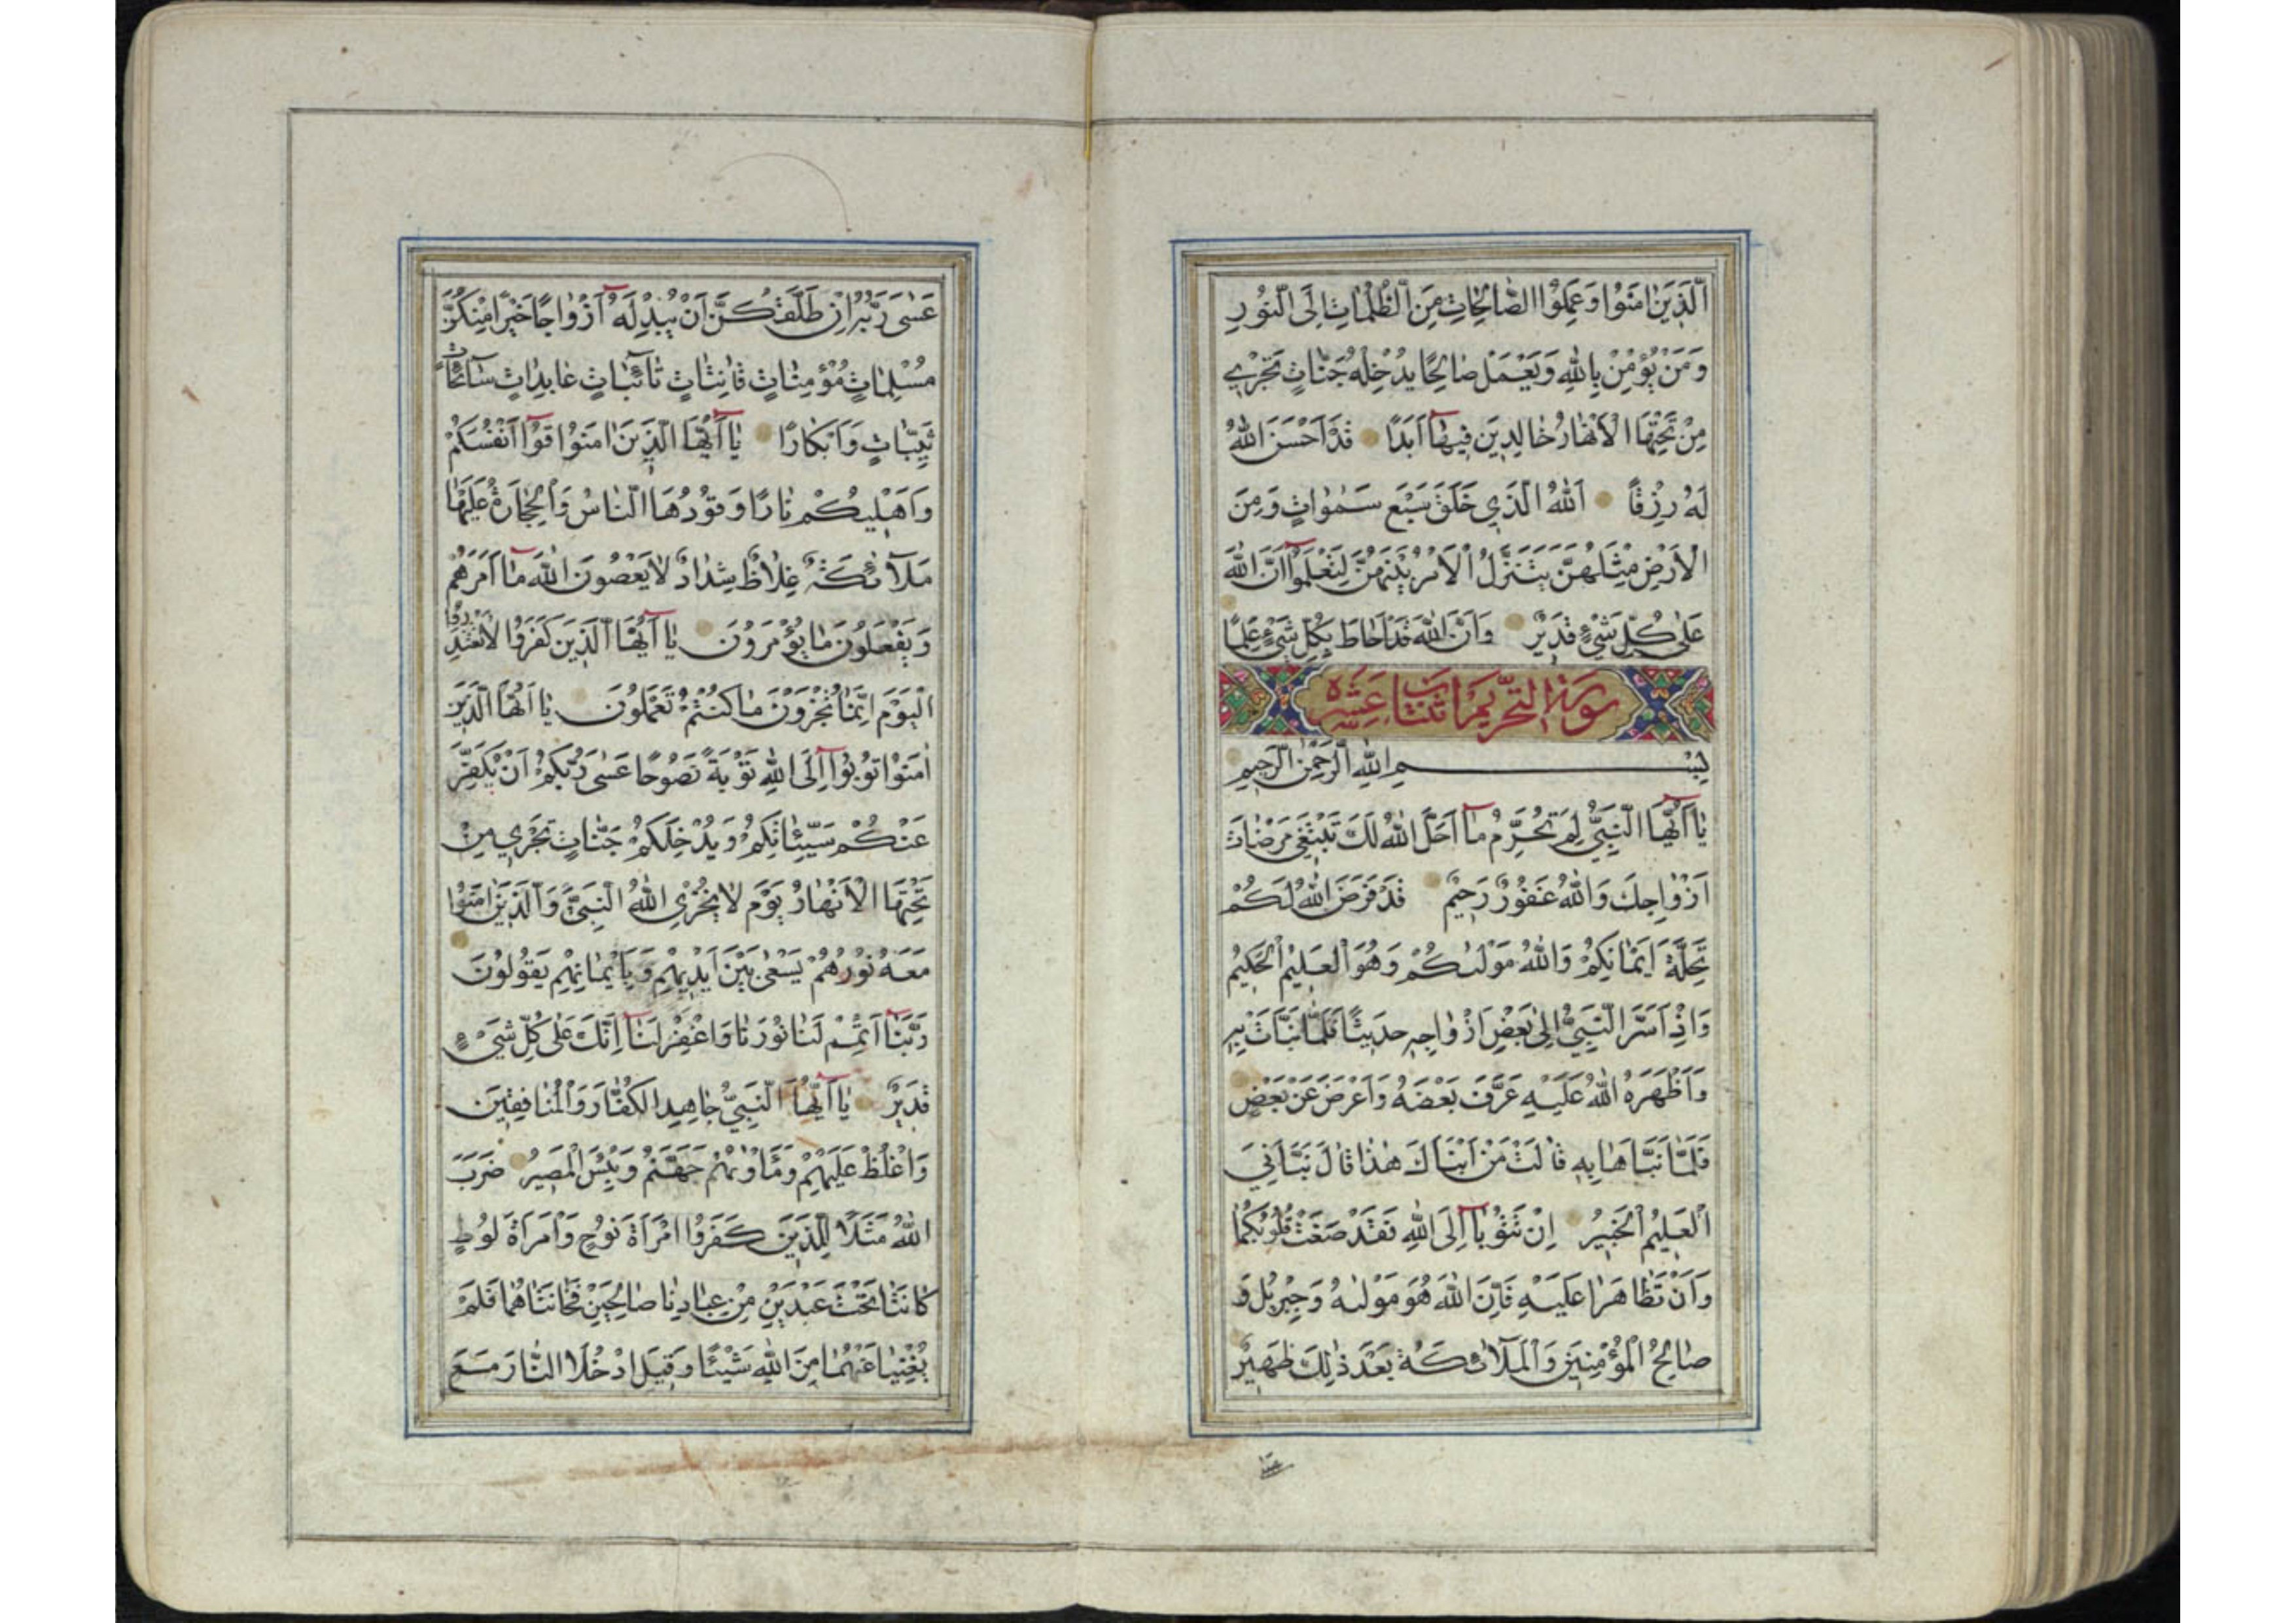 الَّذِينَ اٰمَنُوا وَعَمِلُوا الصَّالِحَاتِ مِنَ الظُّلُمَاتِ اِلَى النُّورِ
وَمَنْ يُؤْمِنْ بِاللّٰهِ وَيَعْمَلْ صَالِحًا يُدْخِلْهُ جَنَّاتٍ تَجْرِي
مِنْ تَحْتِهَا الْاَنْهَارُ خَالِدِينَ فِيهَآ اَبَدًا قَدْ اَحْسَنَ اللّٰهُ
لَهُ رِزْقًا اَللّٰهُ الَّذِي خَلَقَ سَبْعَ سَمٰوَاتٍ وَمِنَ
الْاَرْضِ مِثْلَهُنَّ يَتَنَزَّلُ الْاَمْرُ بَيْنَهُنَّ لِتَعْلَمُوآ اَنَّ اللّٰهَ
عَلٰى كُلِّ شَيْءٍ قَدِيرٌ وَاَنَّ اللّٰهَ قَدْ اَحَاطَ بِكُلِّ شَيْءٍ عِلْمًا
سورة التحريم اثنتا عشره
بِسْمِ اللّٰهِ الرَّحْمٰنِ الرَّحِيمِ
يَآ اَيُّهَا النَّبِيُّ لِمَ تُحَرِّمُ مَآ اَحَلَّ اللّٰهُ لَكَ تَبْتَغِي مَرْضَاتَ
اَزْوَاجِكَ وَاللّٰهُ غَفُورٌ رَحِيمٌ قَدْ فَرَضَ اللّٰهُ لَكُمْ
تَحِلَّةَ اَيْمَانِكُمْ وَاللّٰهُ مَوْلٰيكُمْ وَهُوَ الْعَلِيمُ الْحَكِيمُ
وَاِذْ اَسَرَّ النَّبِيُّ اِلٰى بَعْضِ اَزْوَاجِهِ حَدِيثًا فَلَمَّا نَبَّاَتْ بِهِ
وَاَظْهَرَهُ اللّٰهُ عَلَيْهِ عَرَّفَ بَعْضَهُ وَاَعْرَضَ عَنْ بَعْضٍ
فَلَمَّا نَبَّاَهَا بِهِ قَالَتْ مَنْ اَنْبَاَكَ هٰذَا قَالَ نَبَّاَنِيَ
الْعَلِيمُ الْخَبِيرُ اِنْ تَتُوبَآ اِلَى اللّٰهِ فَقَدْ صَغَتْ قُلُوبُكُمَا
وَاِنْ تَظَاهَرَا عَلَيْهِ فَاِنَّ اللّٰهَ هُوَ مَوْلٰيهُ وَجِبْرِيلُ وَ
صَالِحُ الْمُؤْمِنِينَ وَالْمَلَآئِكَةُ بَعْدَ ذٰلِكَ ظَهِيرٌ
عَسٰى رَبُّهُ اِنْ طَلَّقَكُنَّ اَنْ يُبْدِلَهُ اَزْوَاجًا خَيْرًا مِنْكُنَّ
مُسْلِمَاتٍ مُؤْمِنَاتٍ قَانِتَاتٍ تَآئِبَاتٍ عَابِدَاتٍ سَآئِحَاتٍ
ثَيِّبَاتٍ وَاَبْكَارًا يَآ اَيُّهَا الَّذِينَ اٰمَنُوا قُوآ اَنْفُسَكُمْ
وَاَهْلِيكُمْ نَارًا وَقُودُهَا النَّاسُ وَالْحِجَارَةُ عَلَيْهَا
مَلَآئِكَةٌ غِلَاظٌ شِدَادٌ لَا يَعْصُونَ اللّٰهَ مَآ اَمَرَهُمْ
وَيَفْعَلُونَ مَا يُؤْمَرُونَ يَآ اَيُّهَا الَّذِينَ كَفَرُوا لَا تَعْتَذِرُوا
الْيَوْمَ اِنَّمَا تُجْزَوْنَ مَا كُنْتُمْ تَعْمَلُونَ يَا اَيُّهَا الَّذِينَ
اٰمَنُوا تُوبُوآ اِلَى اللّٰهِ تَوْبَةً نَصُوحًا عَسٰى رَبُّكُمْ اَنْ يُكَفِّرَ
عَنْكُمْ سَيِّئَاتِكُمْ وَيُدْخِلَكُمْ جَنَّاتٍ تَجْرِي مِنْ
تَحْتِهَا الْاَنْهَارُ يَوْمَ لَا يُخْزِي اللّٰهُ النَّبِيَّ وَالَّذِينَ اٰمَنُوا
مَعَهُ نُورُهُمْ يَسْعٰى بَيْنَ اَيْدِيهِمْ وَبِاَيْمَانِهِمْ يَقُولُونَ
رَبَّنَآ اَتْمِمْ لَنَا نُورَنَا وَاغْفِرْ لَنَآ اِنَّكَ عَلٰى كُلِّ شَيْءٍ
قَدِيرٌ يَآ اَيُّهَا النَّبِيُّ جَاهِدِ الْكُفَّارَ وَالْمُنَافِقِينَ
وَاغْلُظْ عَلَيْهِمْ وَمَاْوٰيهُمْ جَهَنَّمُ وَبِئْسَ الْمَصِيرُ ضَرَبَ
اللّٰهُ مَثَلًا لِلَّذِينَ كَفَرُوا امْرَاَةَ نُوحٍ وَامْرَاَةَ لُوطٍ
كَانَتَا تَحْتَ عَبْدَيْنِ مِنْ عِبَادِنَا صَالِحَيْنِ فَخَانَتَاهُمَا فَلَمْ
يُغْنِيَا عَنْهُمَا مِنَ اللّٰهِ شَيْئًا وَقِيلَ ادْخُلَا النَّارَ مَعَ